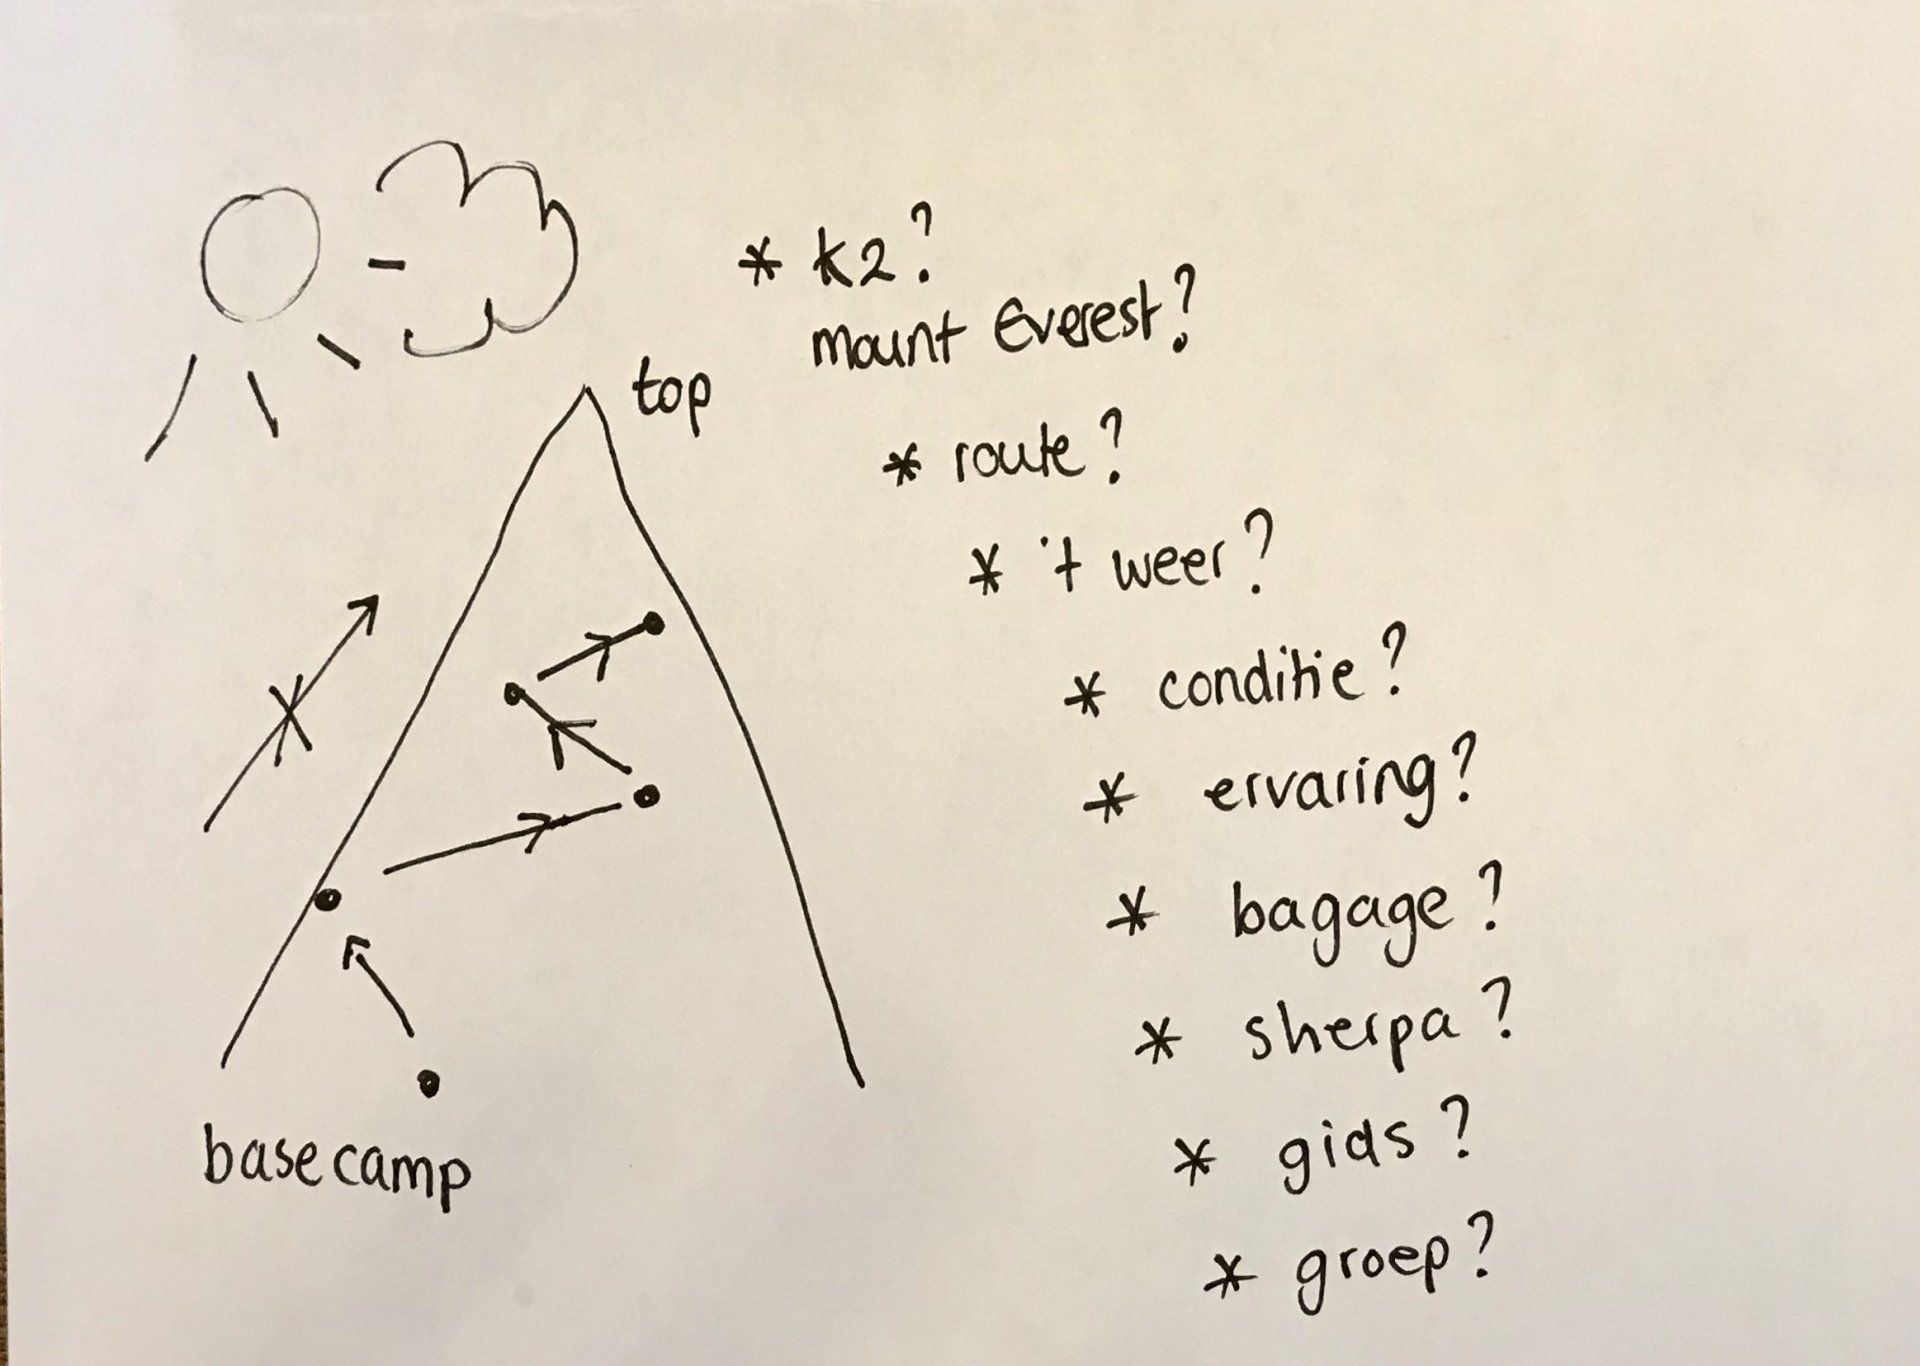 * k2?
mount Everest?
top
* route?
* 't weer?
* conditie?
* ervaring?
* bagage?
* sherpa?
* gids?
* groep?
basecamp